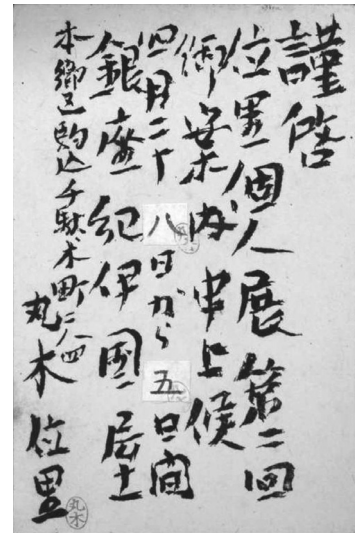 謹啓
位里個人展第二回
御案内申上候
四月二十八日から五日間
銀座紀伊國屋
本郷区駒込千駄木町
丸木位里
丸木